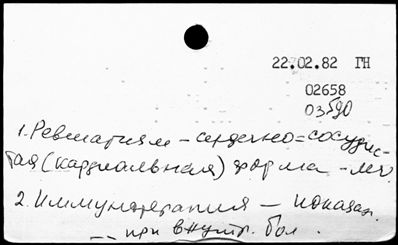 22.02.82 ГН
02658
03590
1. Ревматизм – сердечно=сосудис-
тая (кардиальная) форма – леч.
2. Иммунотерапия – показан.
– – при внутр. бол.